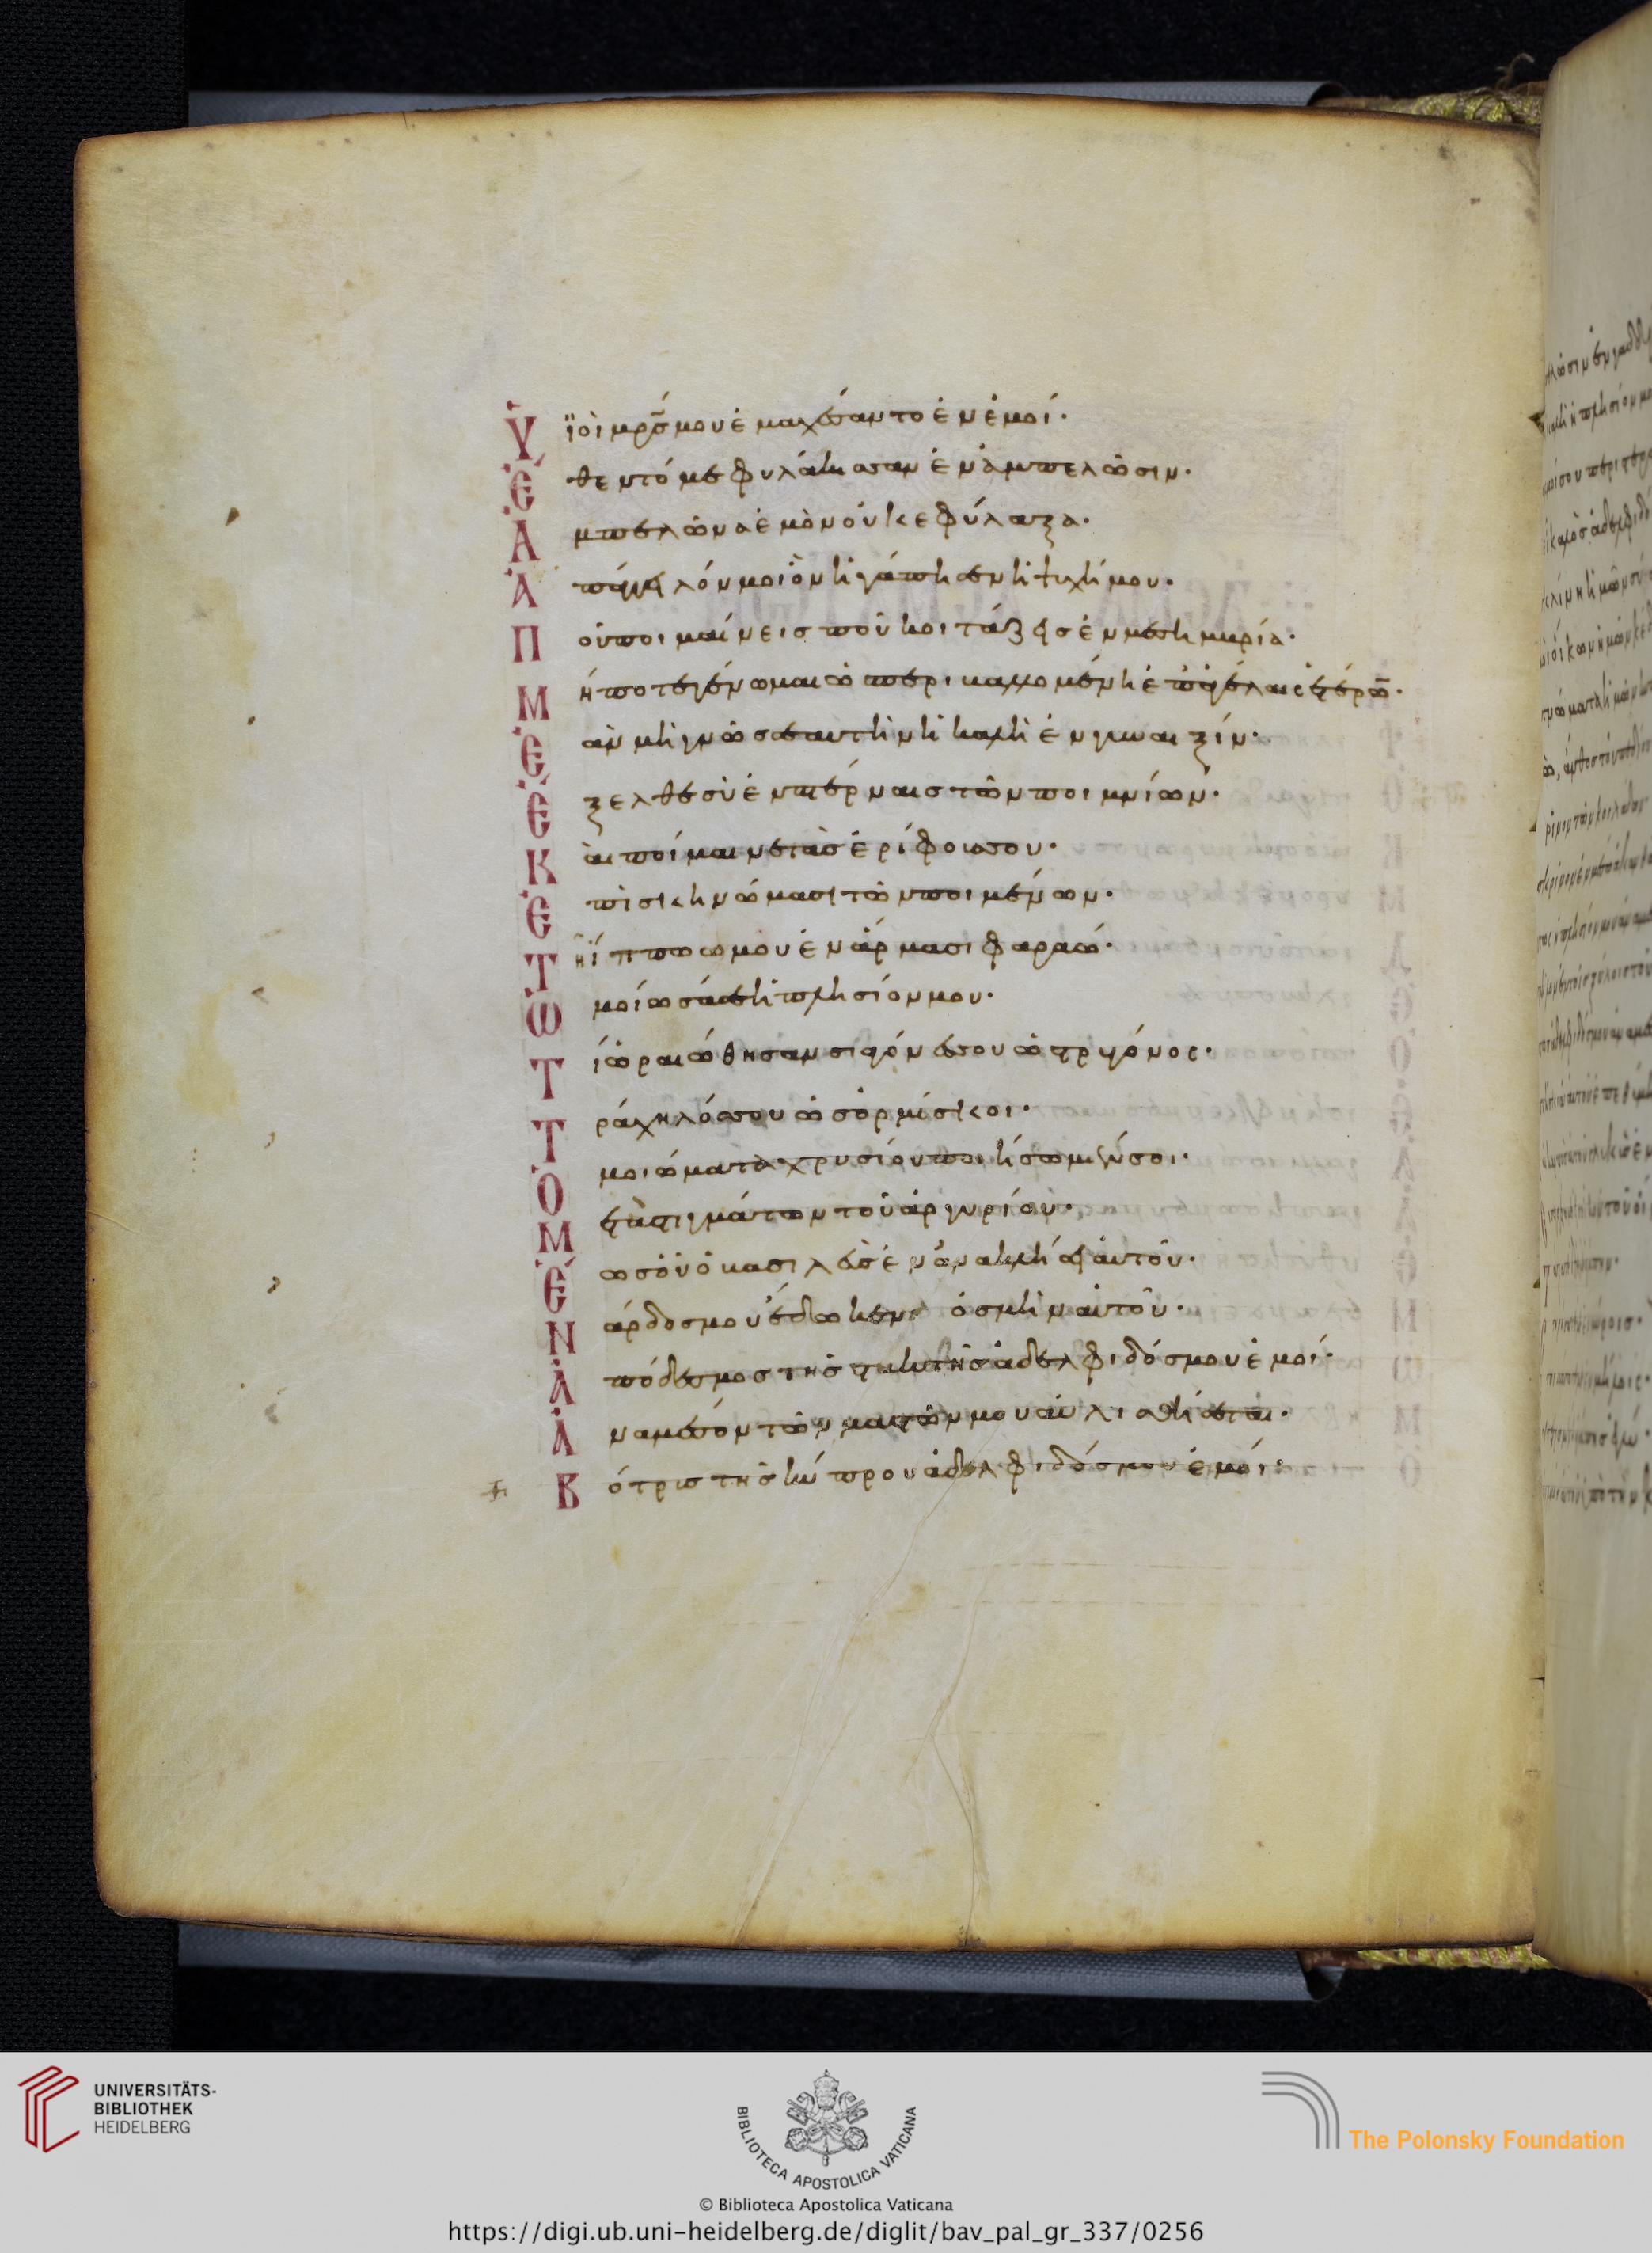 Υἱοὶ μρς μου ἐμαχέσαντο ἐν ἐμοί·
Ἔθεντό με φυλάκισσαν ἐν ἀμπελῶσιν·
Ἀμπελῶνα ἐμὸν οὐκ ἐφύλαξα·
Ἀπάγγειλόν μοι ὃν ἠγάπησεν ἡ ψυχή μου·
Ποῦ ποιμαίνεις ποῦ κοιτάζεις ἐν μεσημβρία·
Μήποτε γένωμαι ὡς περιβαλλομένη ἐπ' ἀγέλαις ἑτέρων·
Ἐὰν μὴ γνῷς σεαυτὴν ἡ καλὴ ἐν γυναιξίν·
Ἔξελθε σὺ ἐν πτέρναις τῶν ποιμνίων·
Καὶ ποίμαινε τὰς ἐρίφους σου·
Ἐπὶ σκηνώμασι τῶν ποιμένων·
Τῇ ἵππῳ μου ἐν ἅρμασι φαραώ·
Ὡμοίωσά σε ἡ πλησίον μου·
Τί ὡραιώθησαν σιαγόνες σου ὡς τρυγόνος·
Τράχηλός σου ὡς ὁρμίσκοι·
Ὁμοιώματα χρυσίου ποιήσωμέν σοι·
Μετὰ στιγμάτων τοῦ ἀργυρίου·
Ἕως οὗ ὁ βασιλεὺς ἐν ἀνακλήσει αὐτοῦ·
Νάρδος μου ἔδωκεν ὀσμὴν αὐτοῦ·
Ἀπόδεσμος τῆς στακτῆς ἀδελφιδός μου ἐμοί·
Ἀναμέσον τῶν μαστῶν μου αὐλισθήσεται·
Βότρυς τῆς κύπρου ἀδελφιδός μου ἐμοί·
UNIVERSITÄTS-
BIBLIOTHEK
HEIDELBERG
BIBLIOTECA APOSTOLICA VATICANA
The Polonsky Foundation
© Biblioteca Apostolica Vaticana
https://digi.ub.uni-heidelberg.de/diglit/bav_pal_gr_337/0256